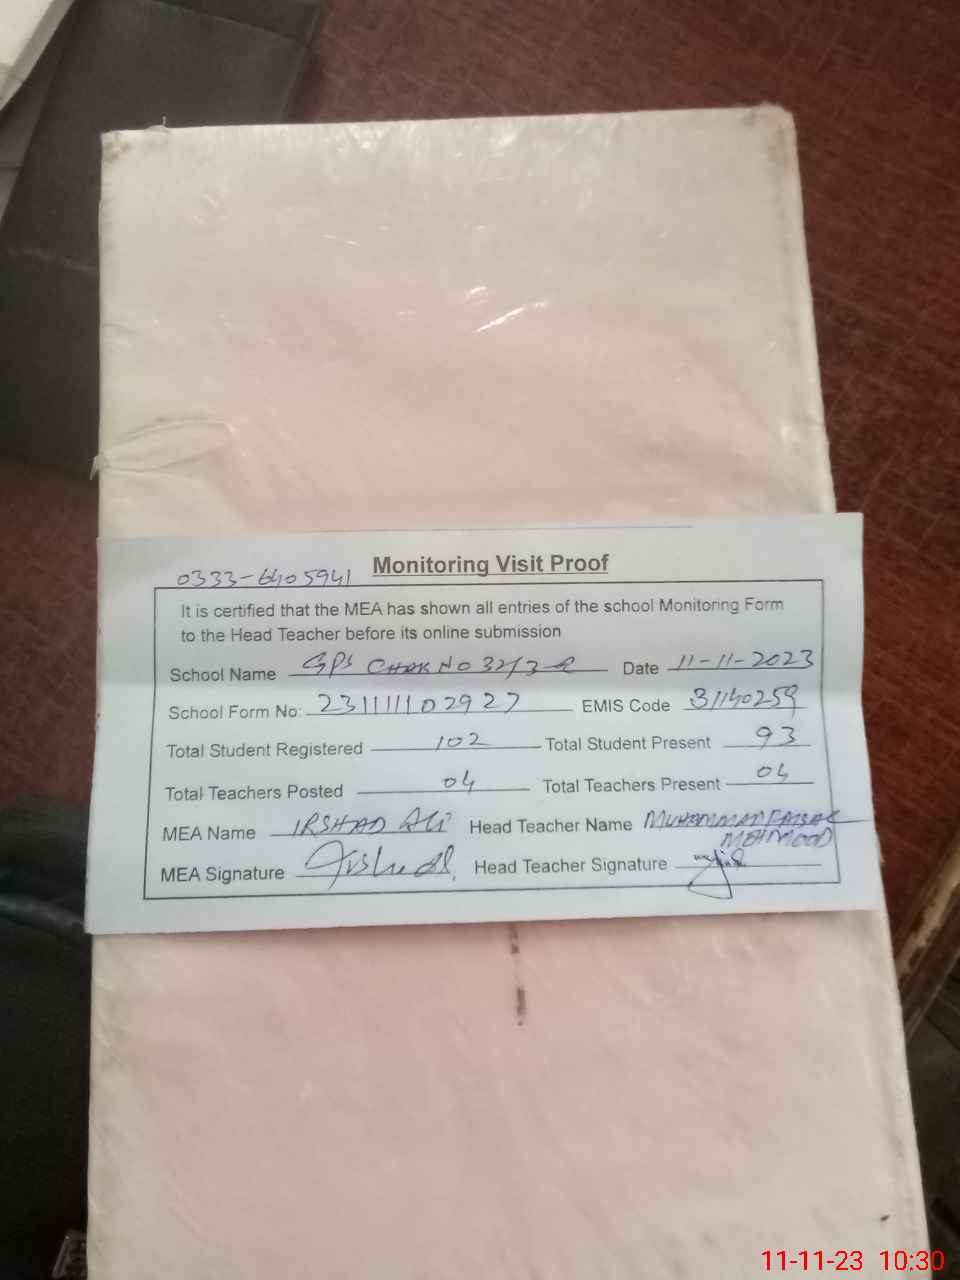 Monitoring Visit Proof
0333-6405941
It is certified that the MEA has shown all entries of the school Monitoring Form
to the Head Teacher before its online submission
School Name GPS CHAK NO 32/3-R Date 11-11-2023
School Form No: 231111102927 EMIS Code 31140259
Total Student Registered 102 Total Student Present 93
Total Teachers Posted 04 Total Teachers Present 04
MEA Name IRSHAD ALI Head Teacher Name MUHAMMAD FAISAL
MEHMOOD
MEA Signature Irshad Head Teacher Signature
11-11-23 10:30